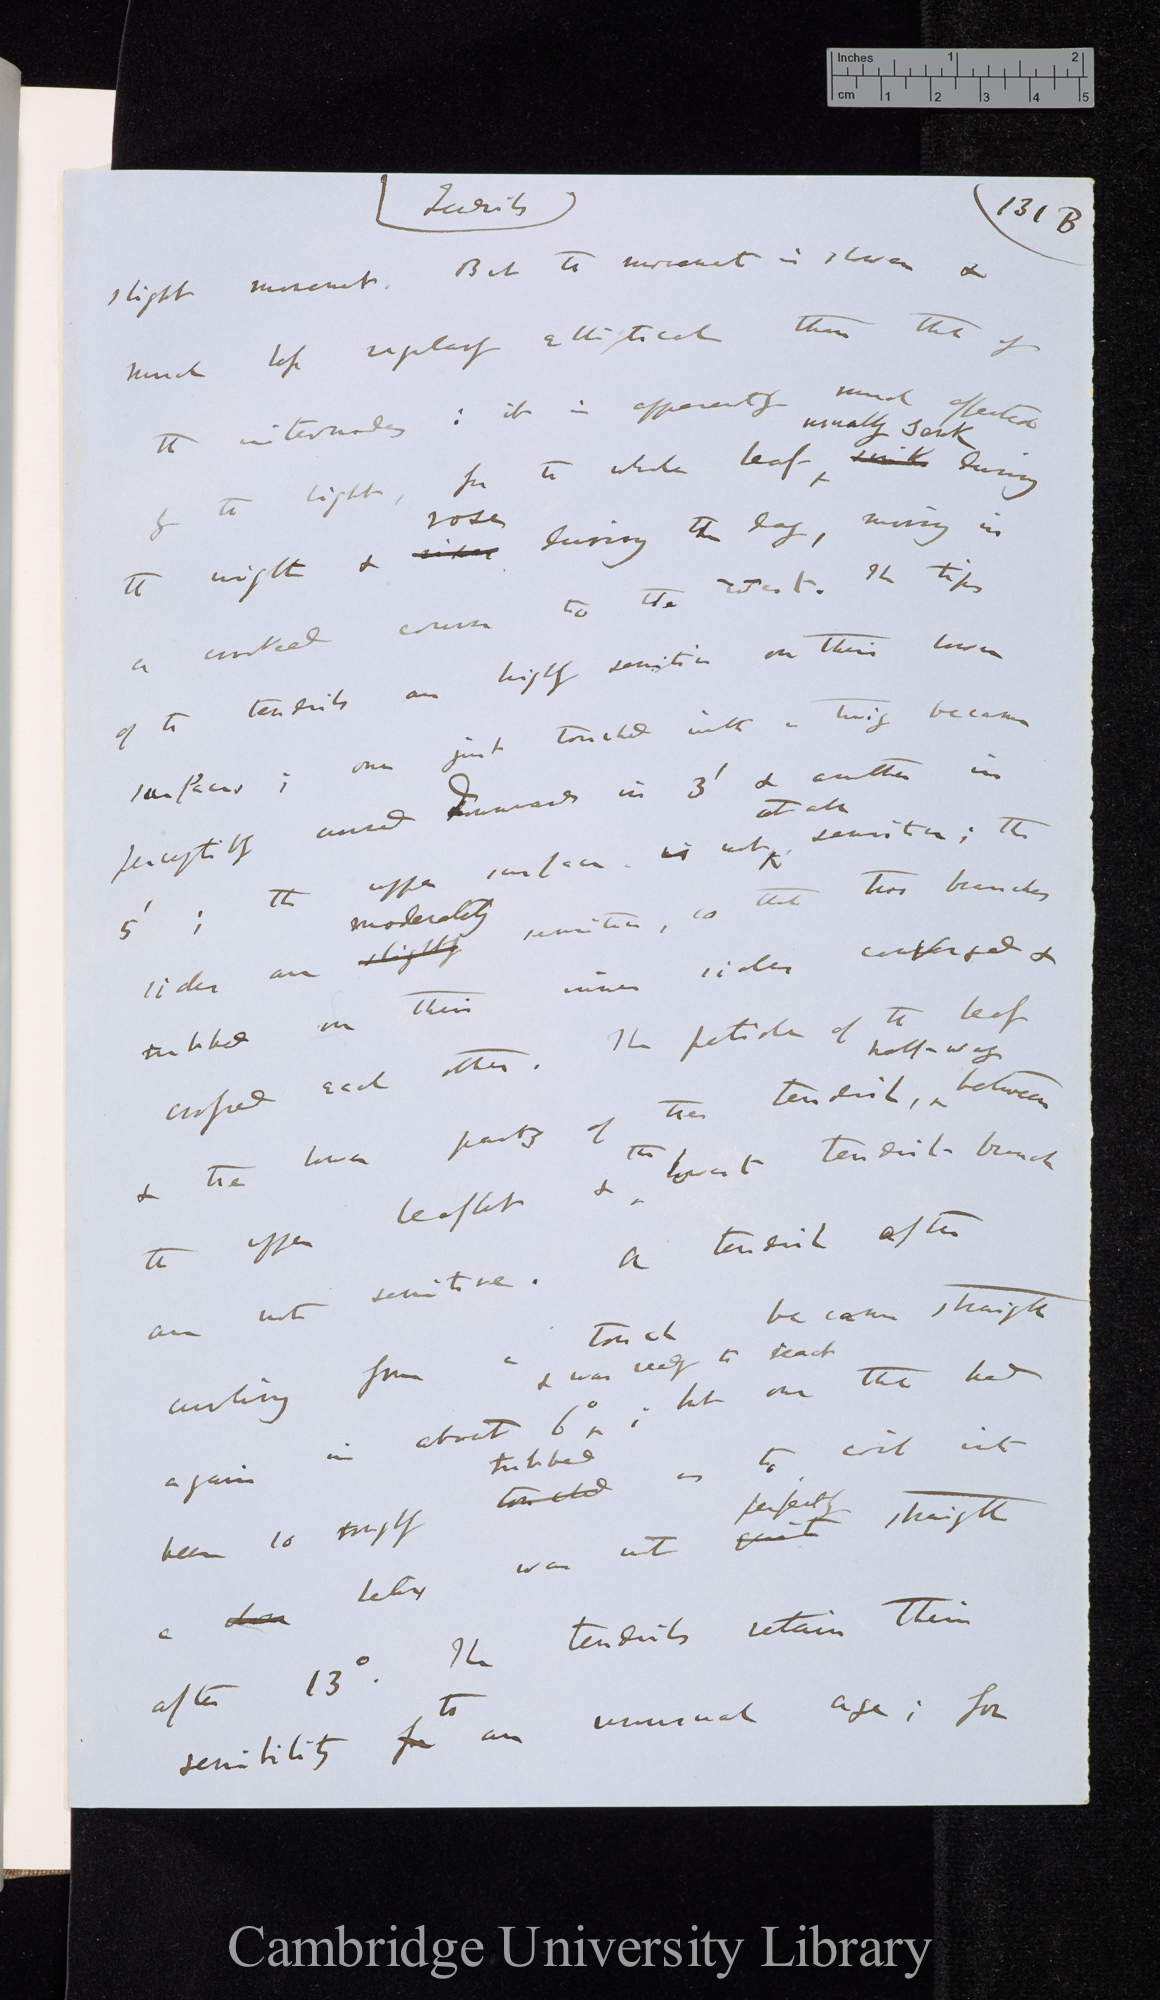 Inches 1 2
cm 1 2 3 4 5
Tendrils
131 B
slight movement. But the movement is slower &
much less regularly elliptical than that of
the internodes; it is apparently much affected
usually sank
by the light, for the whole leaf sinks during
rose
the night & rises during the day, moving in
a crooked course to the west. The tips
of the tendrils are highly sensitive on their lower
surfaces; one just touched with a twig became
perceptibly curved downwards in 3' & another in
at all
5'; the upper surface is not sensitive; the
moderately
sides are slightly sensitive, so that two branches
rubbed on their inner sides converged &
crossed each other. The petiole of the leaf
half-way
& the lower parts of the tendril, between
the
the upper leaflet & lowest tendril-branch
are not sensitive. A tendril after
curling from a touch became straight
& was ready to react
again in about 6°; but one that had
rubbed
been so roughly touched as to coil into
perfectly
a helix was not quite straight
after 13°. The tendrils retain their
to
sensibility for an unusual age; for
Cambridge University Library